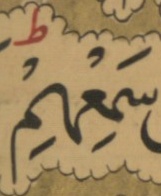 ط
سَمْعِهِمْ